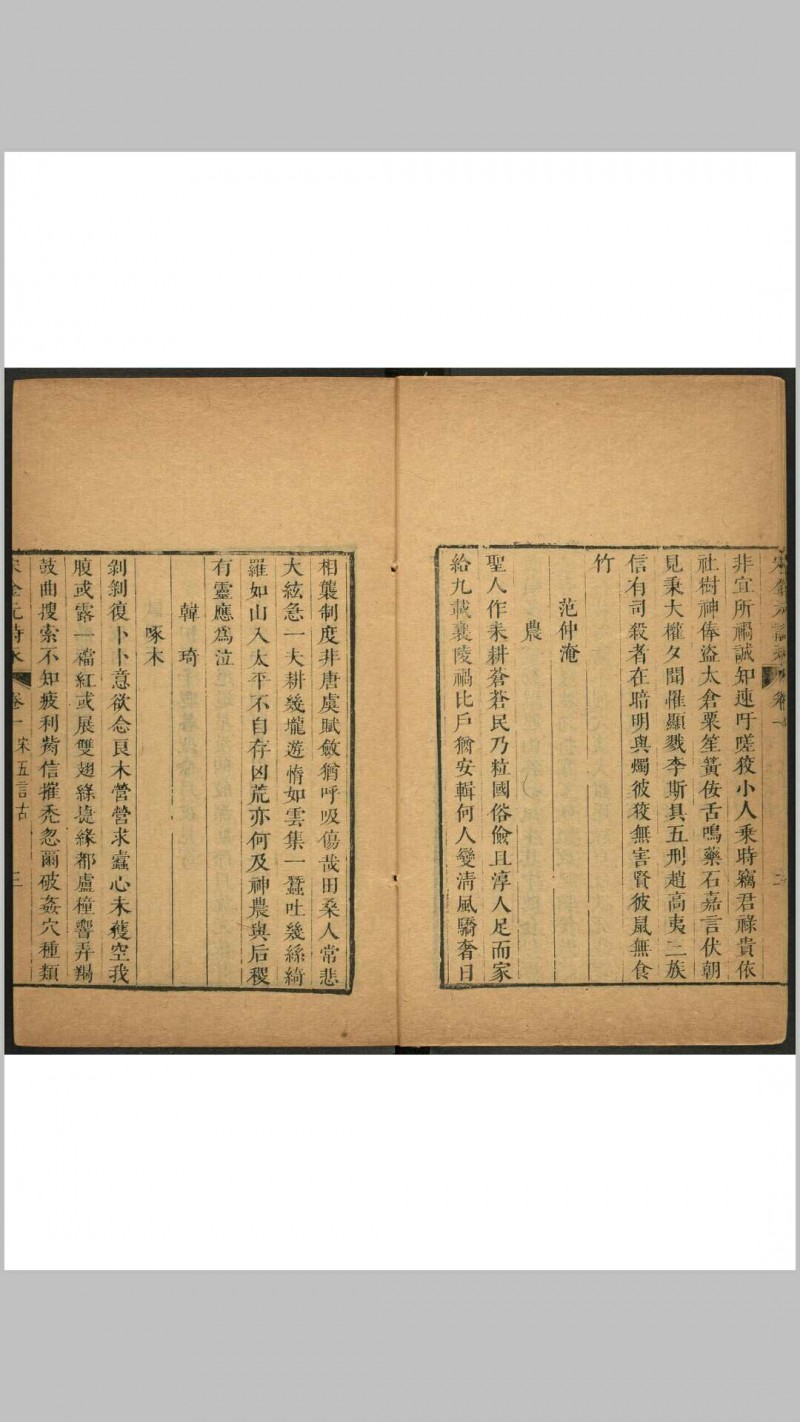 非宜所禍誠知連吁嗟狡小人乘時竊君祿貴依
社樹神俸盜太倉粟笙簧佞舌鳴藥石嘉言伏朝
見秉大權夕聞罹顯戮李斯具五刑趙高夷三族
信有司殺者在暗明與燭彼狡無害賢彼鼠無食
竹
范仲淹
農
聖人作耒耕蒼蒼民乃粒國俗儉且淳人足而家
給九載襄陵禍比戶猶安輯何人變清風驕奢日
相襲制度非唐虞賦斂猶呼吸傷哉田桑人常悲
大絃急一夫耕幾壠遊惰如雲集一蠶吐幾絲綺
羅如山入太平不自存凶荒亦何及神農與后稷
有靈應爲泣
韓琦
啄木
剝剝復卜卜意欲念良木營營求蠹心未穫空我
腹或露一襠紅或展雙翅綠捷緣都盧橦響弄羯
鼓曲搜索不知疲利觜信摧禿忽爾破姦穴種類
卷一 宋五言古 三